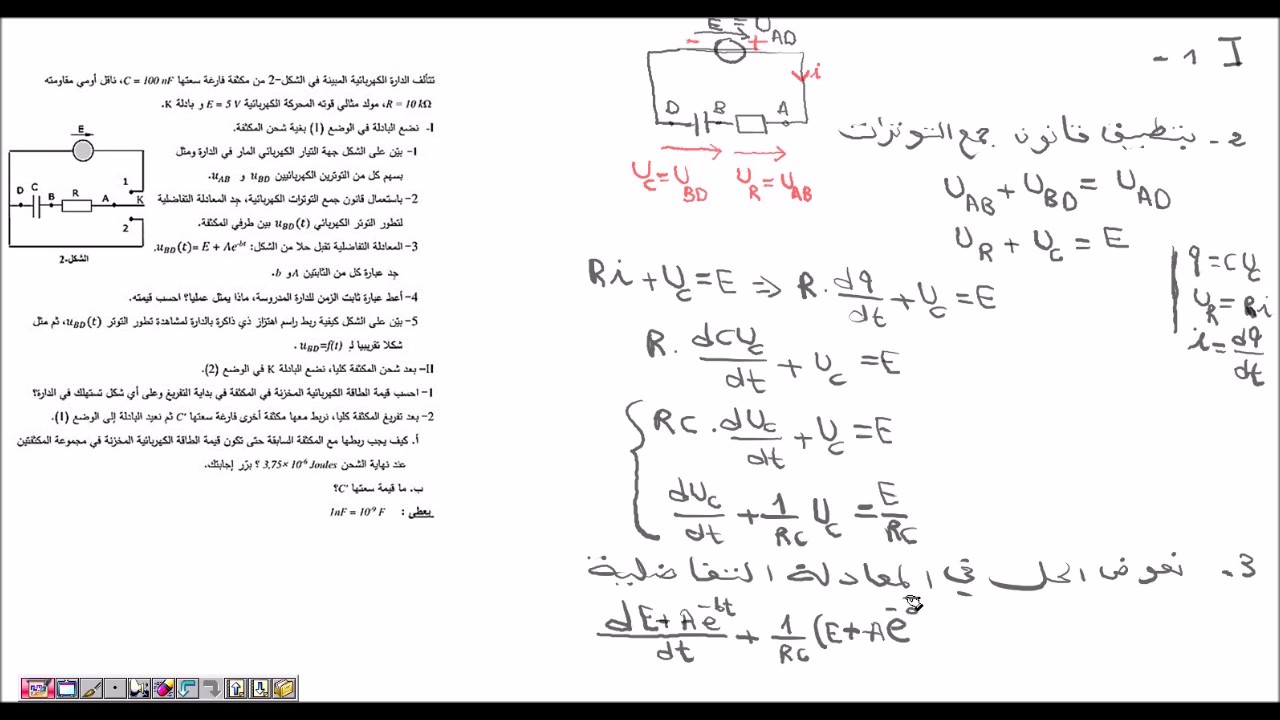 تتألف الدارة الكهربائية المبينة في الشكل-2 من مكثفة فارغة سعتها C = 100 nF، ناقل أومي مقاومته
R = 10 kΩ، مولد مثالي قوته المحركة الكهربائية E = 5 V و بادلة K.
I- نضع البادلة في الوضع (1) بغية شحن المكثفة.
1- بيّن على الشكل جهة التيار الكهربائي المار في الدارة ومثل
بسهم كل من التوترين الكهربائيين uBD و uAB.
2- باستعمال قانون جمع التوترات الكهربائية، جد المعادلة التفاضلية
لتطور التوتر الكهربائي uBD(t) بين طرفي المكثفة.
3- المعادلة التفاضلية تقبل حلا من الشكل: uBD(t)= E + Ae-bt.
جد عبارة كل من الثابتين A و b.
4- أعط عبارة ثابت الزمن للدارة المدروسة، ماذا يمثل عمليا؟ احسب قيمته.
5- بيّن على الشكل كيفية ربط راسم اهتزاز ذي ذاكرة بالدارة لمشاهدة تطور التوتر uBD(t)، ثم مثل
شكلا تقريبيا لـ uBD=f(t).
II- بعد شحن المكثفة كليا، نضع البادلة K في الوضع (2).
1- احسب قيمة الطاقة الكهربائية المخزنة في المكثفة في بداية التفريغ وعلى أي شكل تستهلك في الدارة؟
2- بعد تفريغ المكثفة كليا، نربط معها مكثفة أخرى فارغة سعتها C' ثم نعيد البادلة إلى الوضع (1).
أ. كيف يجب ربطها مع المكثفة السابقة حتى تكون قيمة الطاقة الكهربائية المخزنة في مجموعة المكثفتين
عند نهاية الشحن 3,75×10-6 Joules ؟ برّر إجابتك.
ب. ما قيمة سعتها C'؟
يعطى : 1nF = 10-9 F
E
D C B R A 1 K
2
الشكل-2
E = UAD
- +
i
D B A
UC = UBD
UR = UAB
I 1 -
2- بتطبيق قانون جمع التوترات
UAB + UBD = UAD
UR + UC = E
q = CUC
UR = Ri
i = dq/dt
Ri + UC = E ⇒ R . dq/dt + UC = E
R . dCUC/dt + UC = E
RC . dUC/dt + UC = E
dUC/dt + 1/RC UC = E/RC
3. نعوض الحل في المعادلة التفاضلية
dE + Ae-bt/dt + 1/RC (E + Ae-